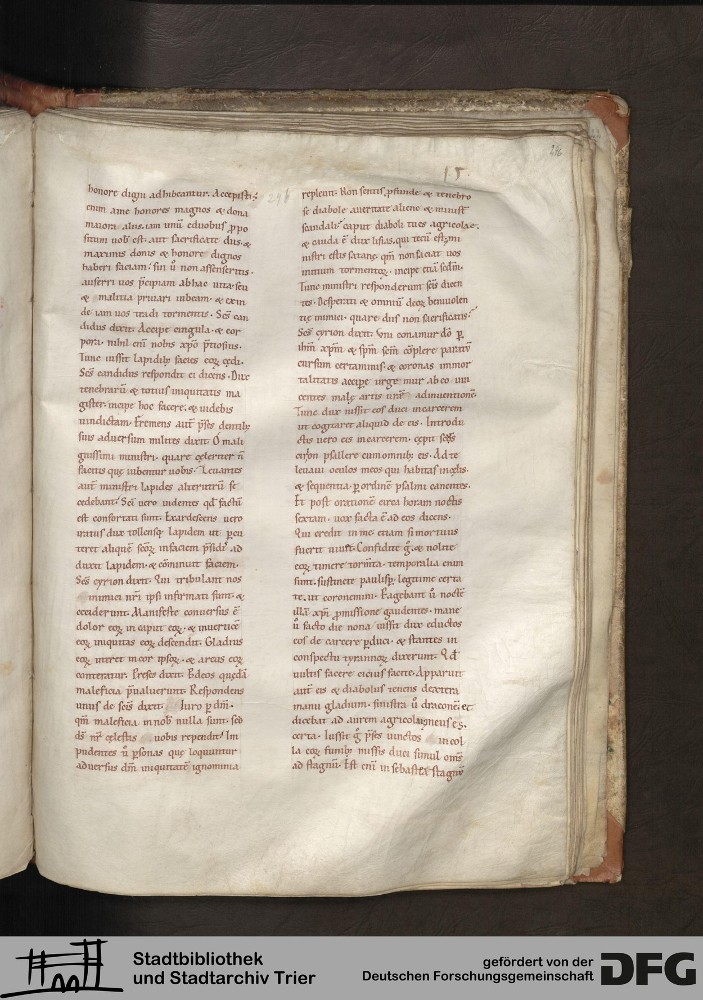 246
15
honore digni adhibeantur. Accepisti
enim ante honores magnos & dona
maiora aliis. iam unū eduobus ꝓpo
situm uob est. aut sacrificate diis. &
maximis donis & honore dignos
haberi faciam. sin ū non assenseritis.
auferri uos p̄cipiam abhac uita. seu
& malitia priuari iubeam. & exin
de iam uos tradi tormentis. Scs can
didus dixit. Accipe cingula. & cor
pora. nihil eni nobis xpō p̄tiosius.
Tunc iussit lapidib; facies eoꝝ cędi.
Scs candidus respondit ei dicens. Dux
tenebrarū & totius iniquitatis ma
gister. incipe hoc facere. & uidebis
uindictam. Fremens aut p̄ses dentib;
suis aduersum milites dixit. O mali
gnissimi ministri. quare cęleriter n̄
facitis quę iubentur uobis. Leuantes
aut ministri lapides alterutrū se
cedebant. Sci uero uidentes qd factū
est confortati sunt. Exardescens uero
unus dux tollensq; lapidem ut
teret aliquē scōꝝ infaciem ad
duxit lapidem. & cōminuit faciem.
Scs cyrion dixit. Qui tribulant nos
inimici nr̄i ipsi infirmati sunt. &
ceciderunt. Manifeste conuersus ē
dolor eoꝝ in caput eoꝝ. & inuerticē
eoꝝ iniquitas eoꝝ descendit. Gladius
eoꝝ intret in cor ipsoꝝ. & arcus eoꝝ
conteratur. Preses dixit. Pdeos quędā
maleficia p̄ualuerunt. Respondens
unus de scis dixit. Iuro ꝑ dm̄.
qm̄ maleficia in nob nulla sunt. sed
ds nr̄ cęlestis uobis rependit. Im
pudentes ū psonas quę loquuntur
aduersus dm̄ iniquitatē ignominia
repleuit. Non sentis ꝓfunde & tenebro
se diabole aueritate aliene &
scandalis caput diaboli tu es agricola.
& cauda ē dux lisias. qui tecū est. mi
nistri estis satanę. qm̄ non saciat uos
initium tormentoꝝ. incipe etiā
Tunc ministri responderunt scis dicen
tes. Desperati & omniū deoꝝ beniuolen
tię inimici. quare diis non sacrificatis.
Scs cyrion dixit. Uni conamur dō ꝑ
ihm xpm & spm scm cōplere paratū
cursum certaminis & coronas immor
talitatis accipe. urgemur ab eo uin
centes malę artis urę adinuentionē.
Tunc dux iussit eos duci incarcerem
ut cogitaret aliquid de eis. Introdu
ctis uero eis incarcerem. cępit scs
cirion psallere cum omnib; eis. Ad te
leuaui oculos meos qui habitas incęlis.
& sequentia p ordinē psalmi canentes.
Et post orationē circa horam noctis
sextam. uox facta ē ad eos dicens.
Qui credit in me. etiam si mortuus
fuerit uiuet. Confidite g. & nolite
eoꝝ timere torm̄ta. temporalia enim
sunt. sustinete paulisp. legitime certa
te. ut coronemini. Pagebant ū noctē
illā xpi ꝓmissione gaudentes. mane
ū facto die nona iussit dux eductos
eos de carcere ꝑduci. & stantes in
conspectu tyrannoꝝ dixerunt. Qd
uultis facere cicius facite. Apparuit
aut eis & diabolus tenens dextera
manu gladium. sinistra ū draconē. et
dicebat ad aurem agricolai meus es.
certa. Iussit g p̄ses uinctos in col
la eoꝝ funib; missis duci simul oms
ad stagnū. Est eni in sebastea stagnū
Stadtbibliothek
und Stadtarchiv Trier
gefördert von der
Deutschen Forschungsgemeinschaft
DFG